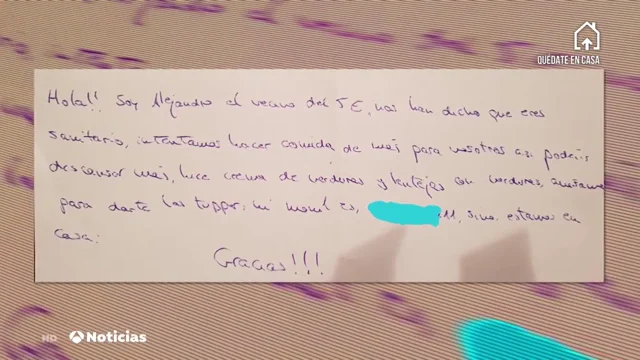 QUÉDATE EN CASA
Hola!! Soy Alejandro el vecino del 5E, nos han dicho que eres
sanitario, intentamos hacer comida de más para vosotros así podéis
descansar más, hice crema de verduras y lentejas con verduras, avísame
para darte los tupper, mi movil es, 11, sino estamos en
casa.
Gracias!!!
HD Noticias